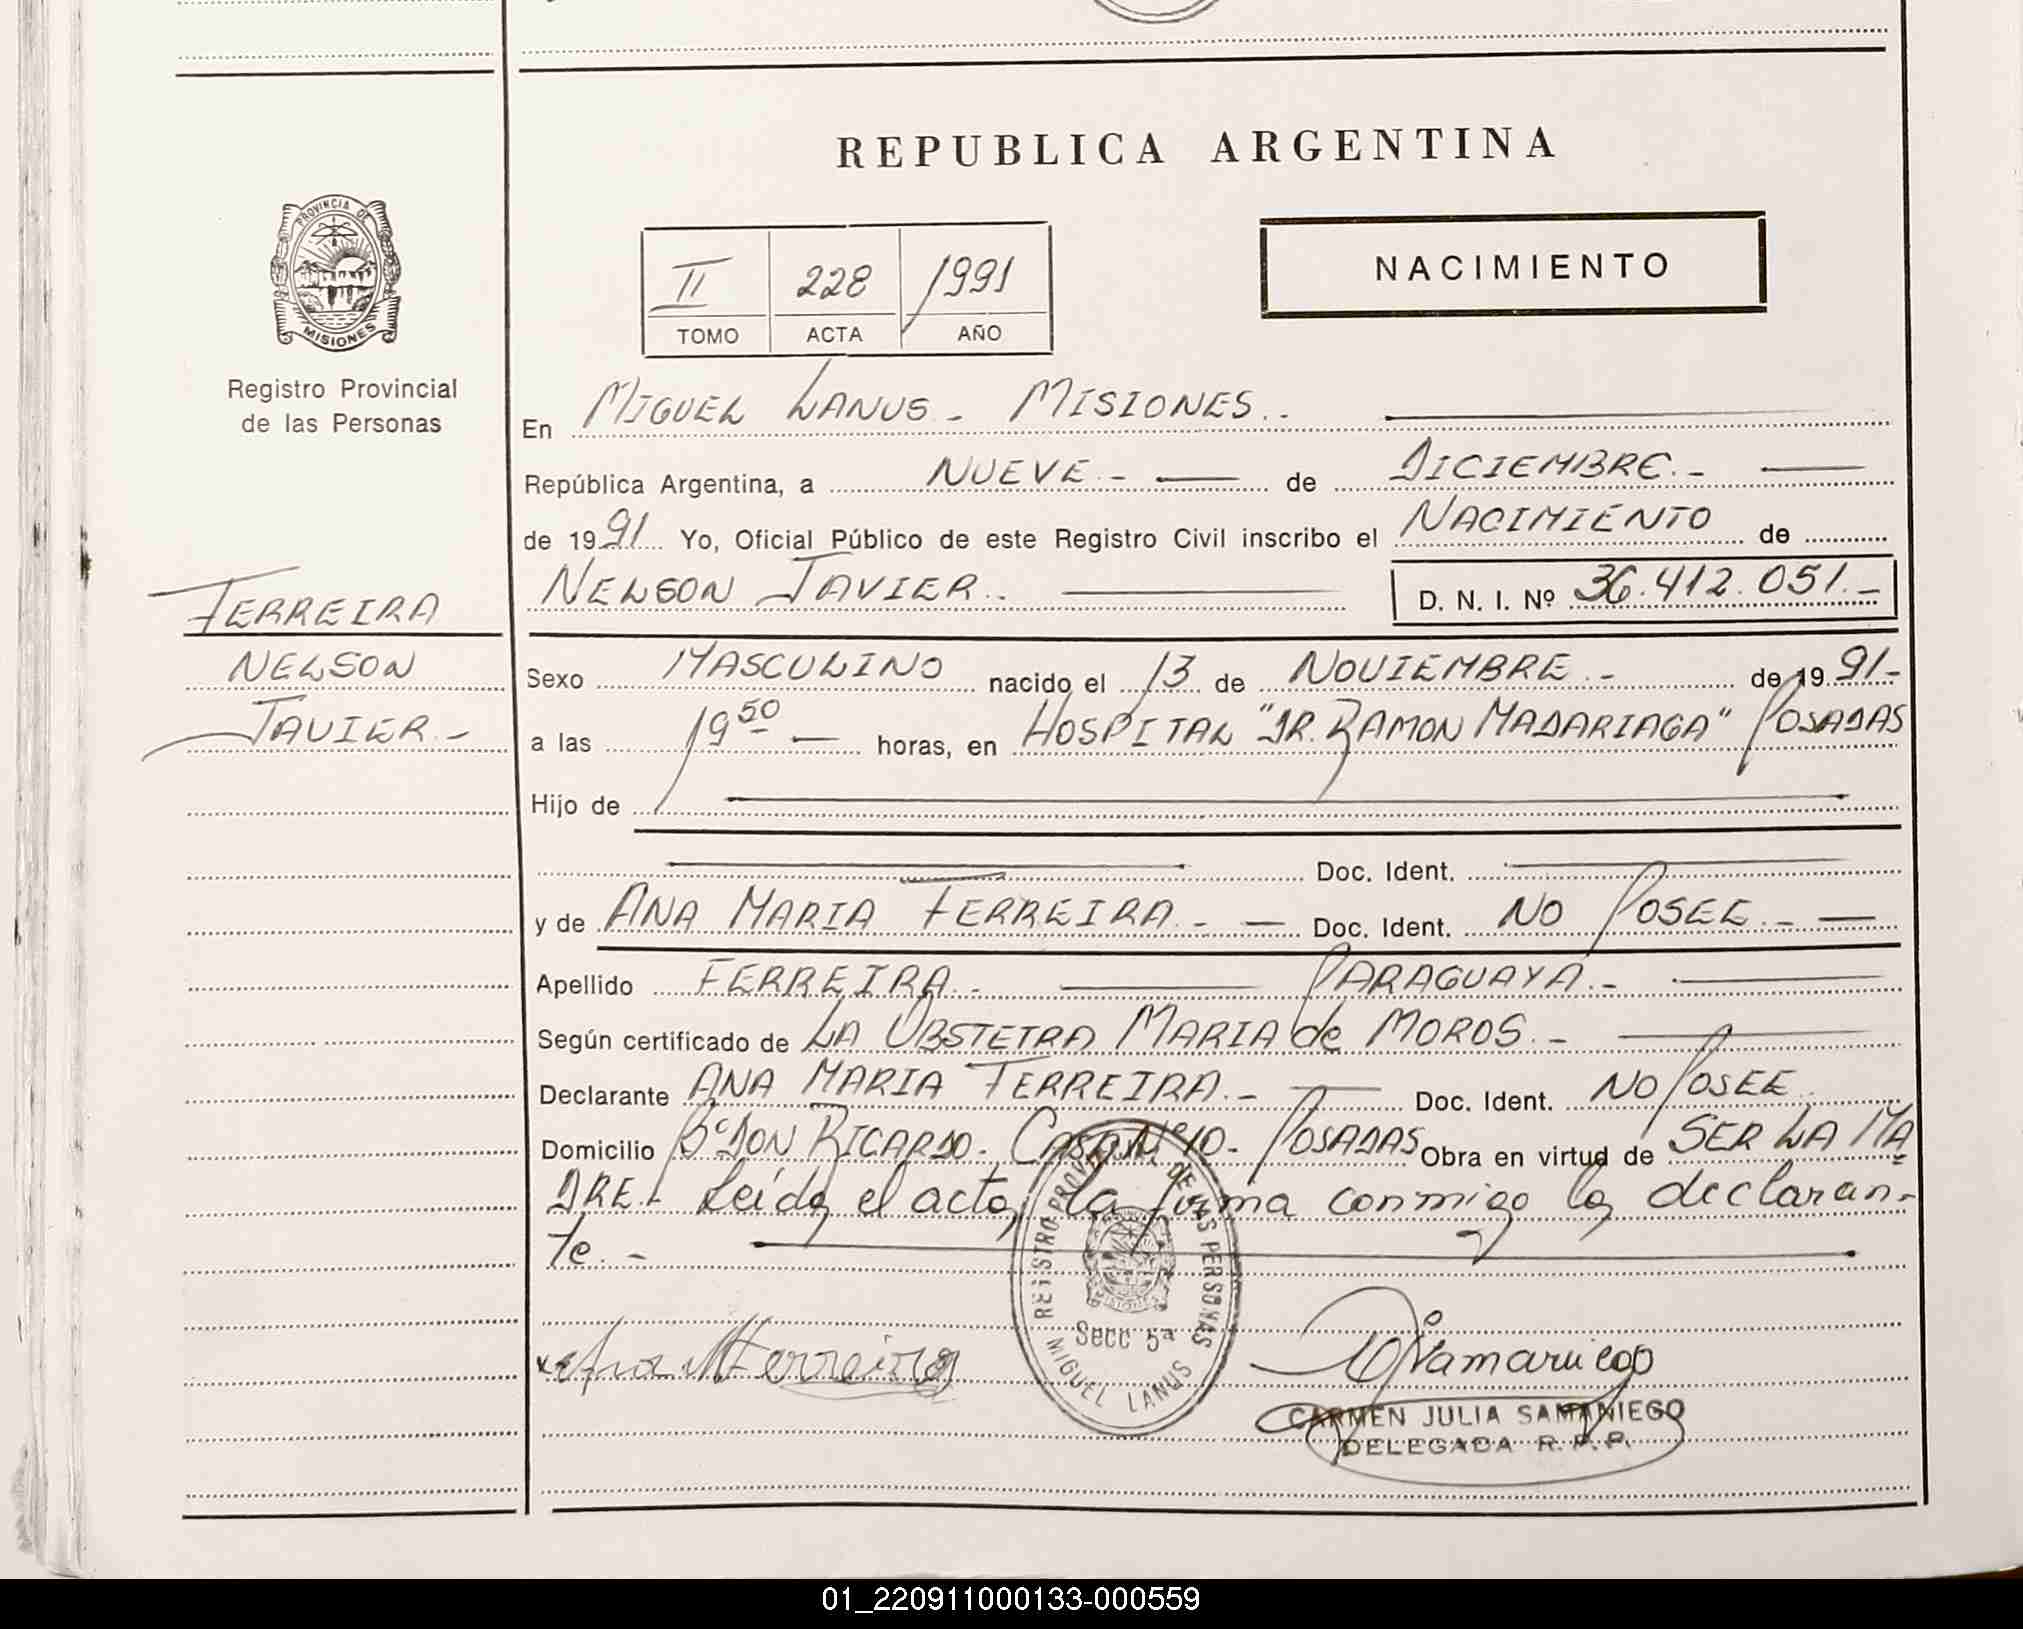 REPUBLICA ARGENTINA
PROVINCIA DE
MISIONES
Registro Provincial
de las Personas
NACIMIENTO
II 228 1991
TOMO ACTA AÑO
En MIGUEL LANUS - MISIONES.-
República Argentina, a NUEVE.- de DICIEMBRE.-
de 1991 Yo, Oficial Público de este Registro Civil inscribo el NACIMIENTO de
NELSON JAVIER.- D. N. I. Nº 36.412.051.-
FERREIRA
NELSON
JAVIER.-
Sexo MASCULINO nacido el 13 de NOVIEMBRE.- de 1991-
a las 19 50 horas, en HOSPITAL "DR. RAMON MADARIAGA" POSADAS
Hijo de
Doc. Ident.
y de ANA MARIA FERREIRA.- Doc. Ident. NO POSEE.-
Apellido FERREIRA.- PARAGUAYA.-
Según certificado de LA OBSTETRA MARIA de MOROS.-
Declarante ANA MARIA FERREIRA.- Doc. Ident. NO POSEE
Domicilio Bº DON RICARDO - CASA Nº 10 - POSADAS Obra en virtud de SER LA MA
DRE.- Leída el acta, la firma conmigo la declaran-
te.-
REGISTRO PROV. DE LAS PERSONAS
Secc 5ª
MIGUEL LANUS
MISIONES
Ana M Ferreira
CARMEN JULIA SAMANIEGO
DELEGADA R. P. P.
01_220911000133-000559